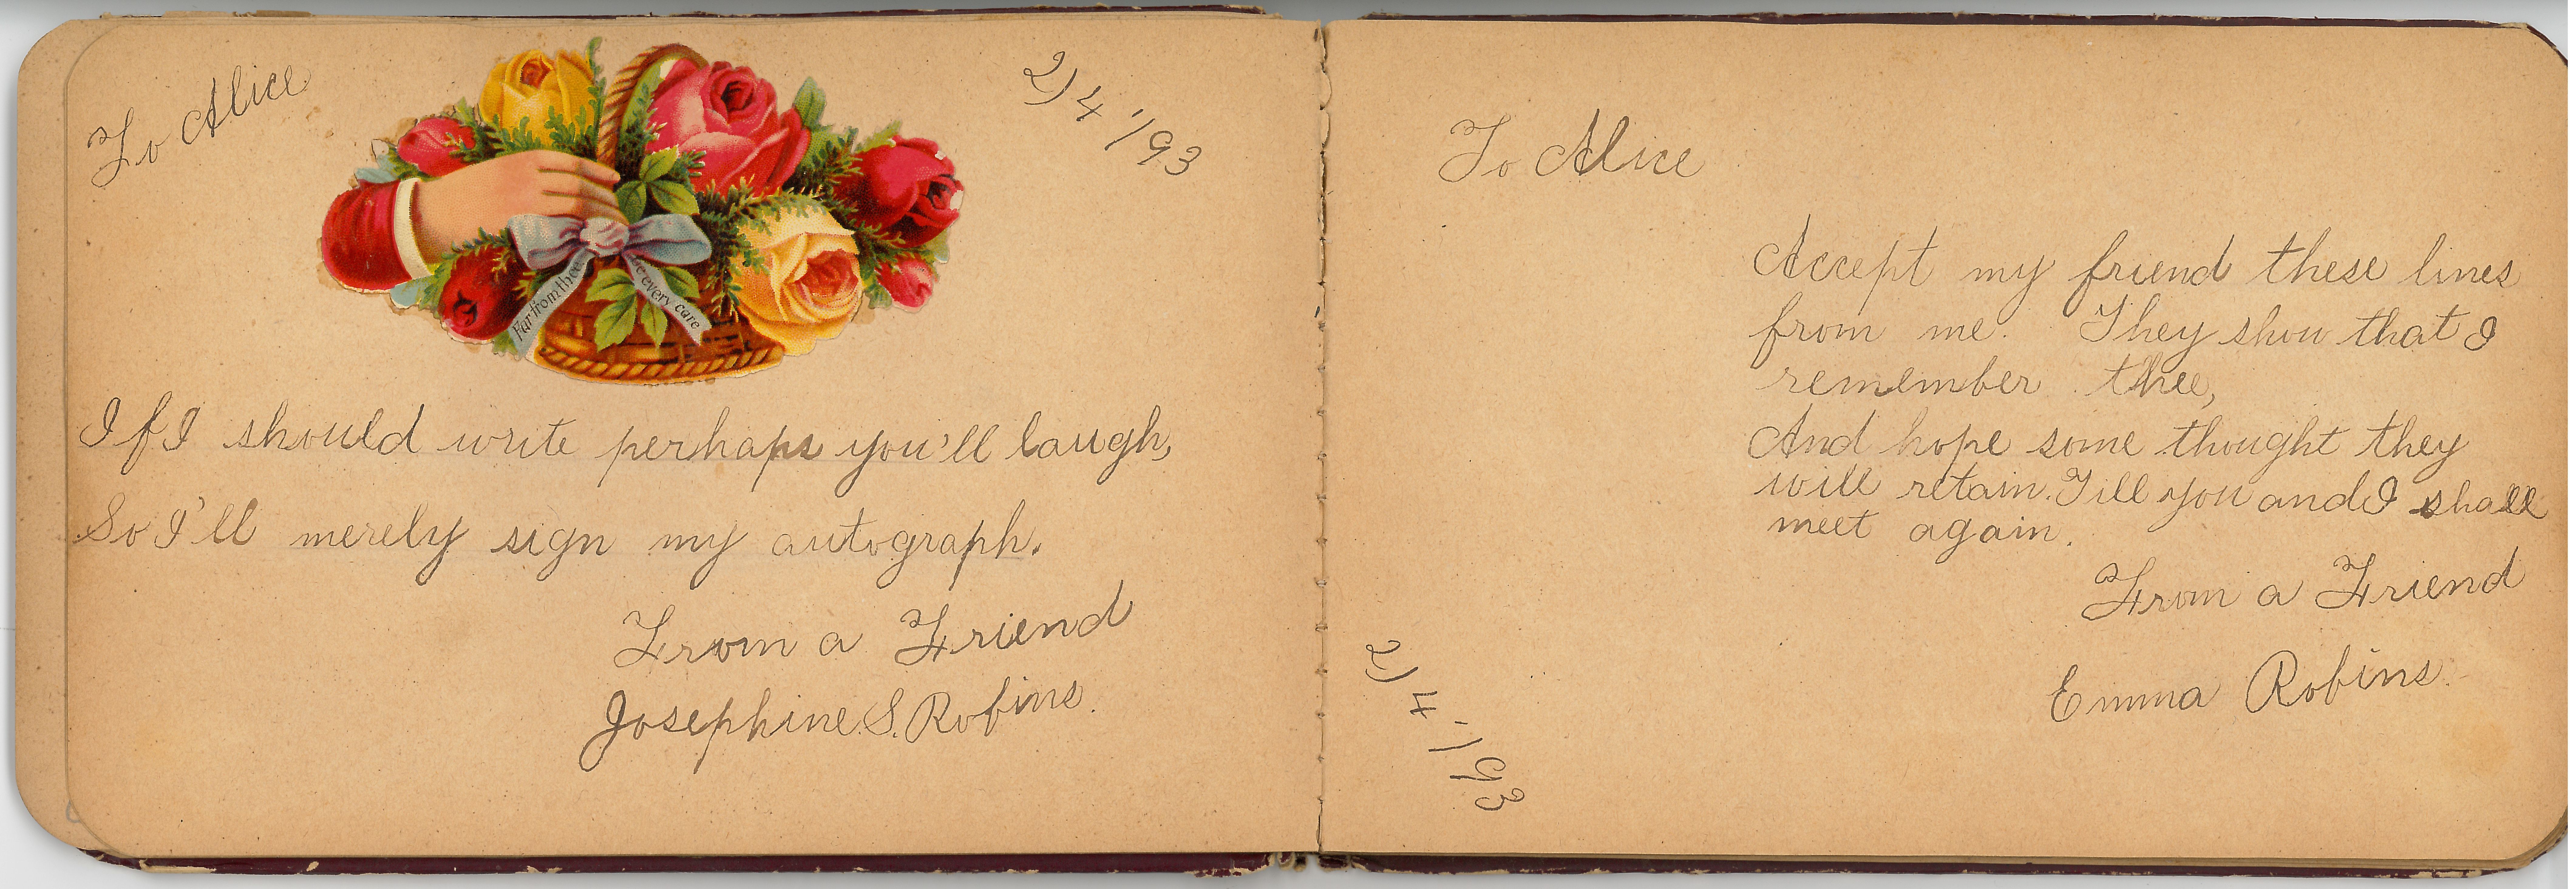 To Alice
2/4'/93
Far from thee
be every care
If I should write perhaps you'll laugh,
So I'll merely sign my autograph.
From a Friend
Josephine S. Robins.
To Alice
Accept my friend these lines
from me. They show that I
remember thee,
And hope some thought they
will retain. Till you and I shall
meet again.
From a Friend
Emma Robins.
2/4-/93